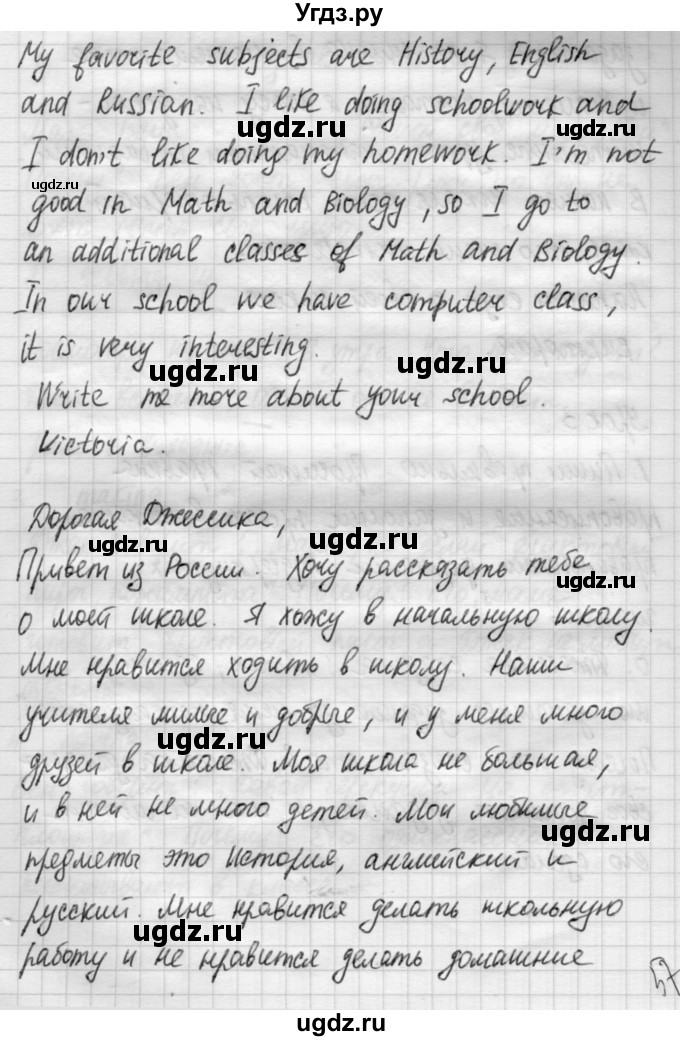 Угдз.ру
My favorite subjects are History, English
and Russian. I like doing schoolwork and
ugdz.ru ugdz.ru
I don't like doing my homework. I'm not
ugdz.ru
good in Math and Biology, so I go to
ugdz.ru
an additional classes of Math and Biology.
ugdz.ru
In our school we have computer class,
it is very interesting.
ugdz.ru ugdz.ru
Write me more about your school.
Victoria.
Дорогая Джессика,
ugdz.ru ugdz.ru
Привет из России. Хочу рассказать тебе
ugdz.ru
о моей школе. Я хожу в начальную школу.
Мне нравится ходить в школу. Наши
ugdz.ru
учителя милые и добрые, и у меня много
ugdz.ru
друзей в школе. Моя школа не большая,
и в ней не много детей. Мои любимые
ugdz.ru
предметы это История, английский и
русский. Мне нравится делать школьную
ugdz.ru
работу и не нравится делать домашние
57
ugdz.ru